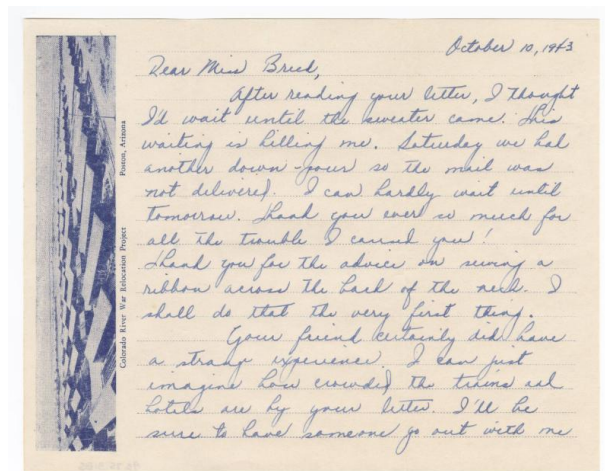 October 10, 1943
Dear Miss Breed,
After reading your letter, I thought
I'd wait until the sweater came. This
waiting is killing me. Saturday we had
another down-pour so the mail was
not delivered. I can hardly wait until
tomorrow. Thank you ever so much for
all the trouble I caused you!
Thank you for the advice on sewing a
ribbon across the back of the neck. I
shall do that the very first thing.
Your friend certainly did have
a strange experience. I can just
imagine how crowded the trains and
hotels are by your letter. I'll be
sure to have someone go out with me
Colorado River War Relocation Project Poston, Arizona